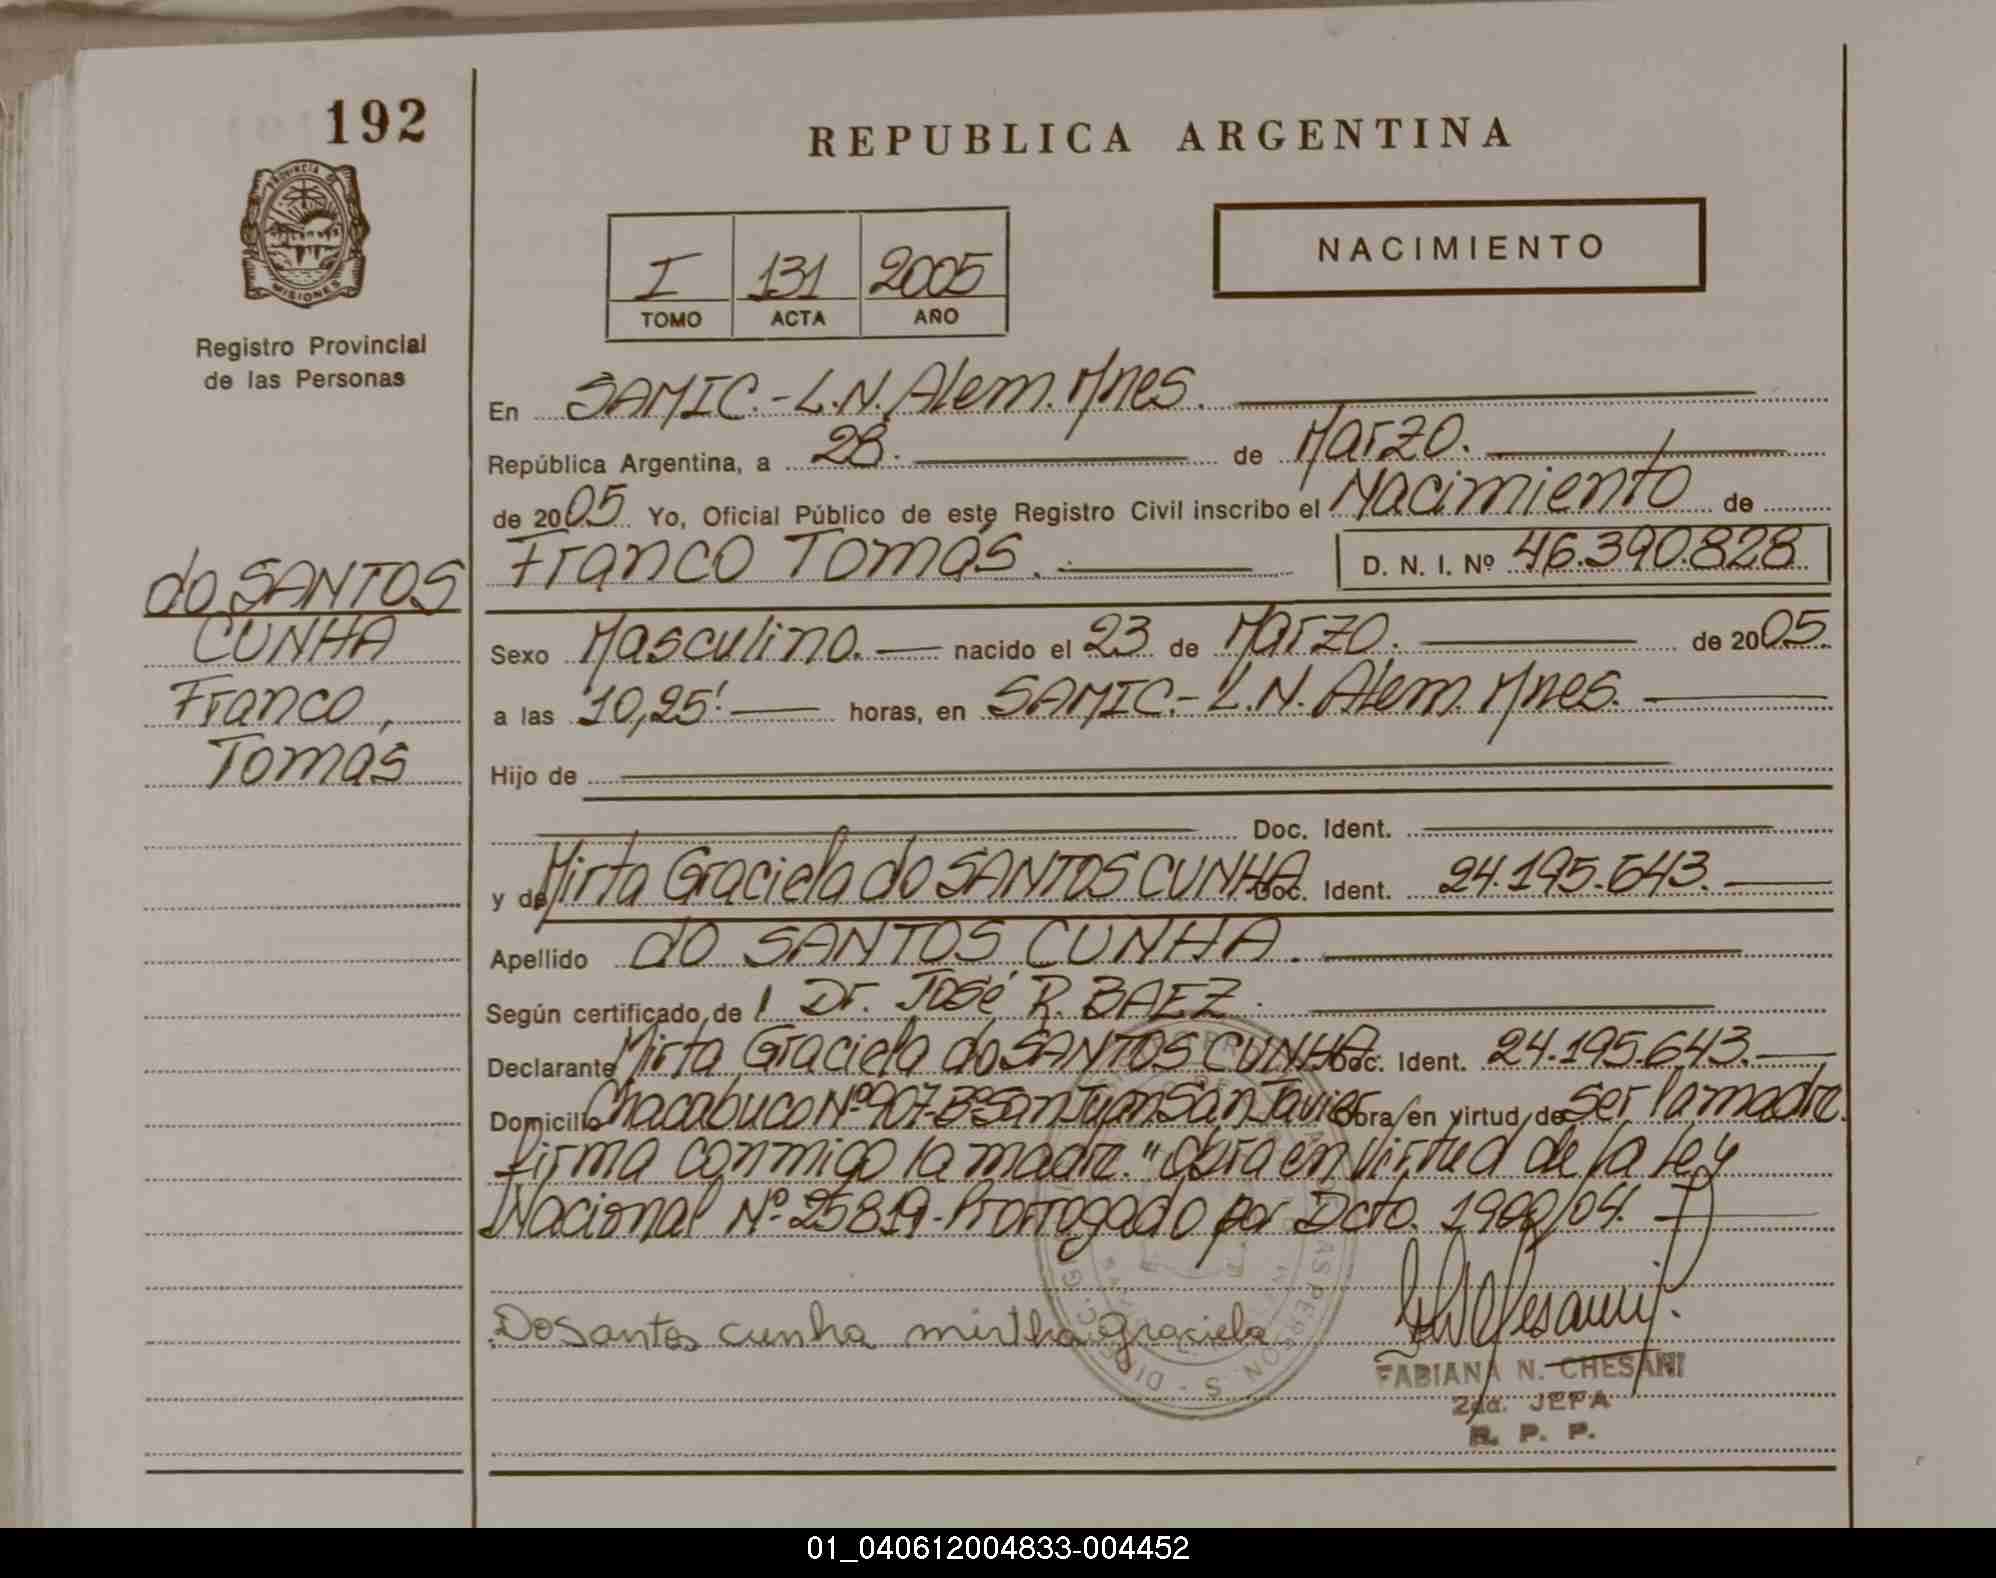 192
REPUBLICA ARGENTINA
PROVINCIA DE
MISIONES
Registro Provincial
de las Personas
I 131 2005
TOMO ACTA AÑO
NACIMIENTO
En SAMIC.- L.N. Alem. Mnes.
República Argentina, a 28. de Marzo.
de 2005 Yo, Oficial Público de este Registro Civil inscribo el Nacimiento de
Franco Tomás. D. N. I. Nº 46.390.828
do SANTOS
CUNHA
Franco,
Tomás
Sexo Masculino. nacido el 23 de Marzo. de 2005.
a las 10,25' horas, en SAMIC.- L.N. Alem. Mnes.
Hijo de
Doc. Ident.
y de Mirta Graciela do SANTOS CUNHA Doc. Ident. 24.195.643.
Apellido do SANTOS CUNHA.
Según certificado de Dr. José R. BAEZ.
Declarante Mirta Graciela do SANTOS CUNHA Doc. Ident. 24.195.643.
Domicilio Chacabuco Nº 907-Bº San Juan San Javier Obra en virtud de ser la madre.
firma conmigo la madre. "Obra en Virtud de la Ley
Nacional Nº 25819- Prorrogado por Dcto. /04.
Dosantos cunha mirtha graciela
FABIANA N. CHESANI
2da. JEFA
R. P. P.
01_040612004833-004452